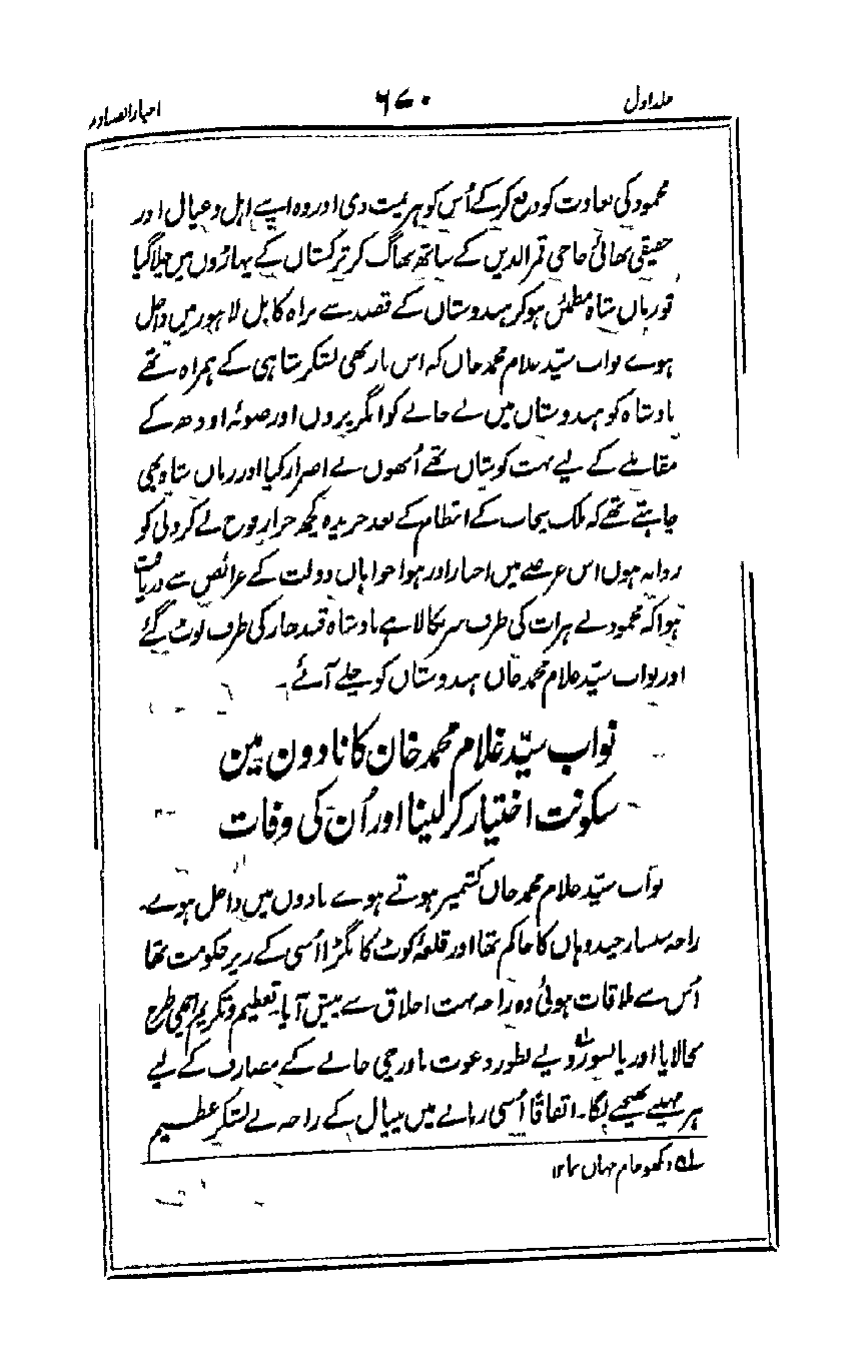 جلد اول ۶۷۰ اخبار الصنادید
محمود کی بغاوت کو دفع کرکے اُس کو ہزیمت دی اور وہ اپنے اہل و عیال اور
حقیقی بھائی حاجی قمر الدین کے ساتھ بھاگ کر ترکستان کے پہاڑوں میں چلا گیا
تو زمان شاہ مطمئن ہوکر ہندوستان کے قصد سے براہ کابل لاہور میں داخل
ہوے نواب سیّد غلام محمد خاں کہ اس بار بھی لشکر شاہی کے ہمراہ تھے
بادشاہ کو ہندوستان میں لے جانے کو انگریزوں اور صوبۂ اودھ کے
مقابلے کے لیے بہت کوشاں تھے اُنھوں نے اصرار کیا اور زماں شاہ بھی
چاہتے تھے کہ ملک پنجاب کے انتظام کے بعد جریدہ کچھ جرار فوج لے کر دلی کو
روانہ ہوں اس عرصے میں اخبار اور ہواخواہان دولت کے عرائض سے دریافت
ہوا کہ محمود نے ہرات کی طرف سر نکالا ہے بادشاہ قندھار کی طرف لوٹ گئے
اور نواب سیّد غلام محمد خاں ہندوستان کو چلے آئے۔
نواب سیّد غلام محمد خان کا نادون مین
سکونت اختیار کر لینا اور اُن کی وفات
نواب سیّد غلام محمد خاں کشمیر ہوتے ہوے نادون میں داخل ہوے۔
راجہ سنسار چند وہاں کا حاکم تھا اور قلعۂ کوٹ کانگڑا اُسی کے زیر حکومت تھا
اُس سے ملاقات ہوئی وہ راجہ بہت اخلاق سے پیش آیا۔ تعظیم و تکریم اچھی طرح
بجا لایا اور پانسو روپے بطور دعوت باورچی خانے کے مصارف کے لیے
ہر مہینے بھیجنے لگا۔ اتفاقاً اُسی زمانے میں نیپال کے راجہ نے لشکر عظیم
دیکھو جام جہاں نما ۱۲